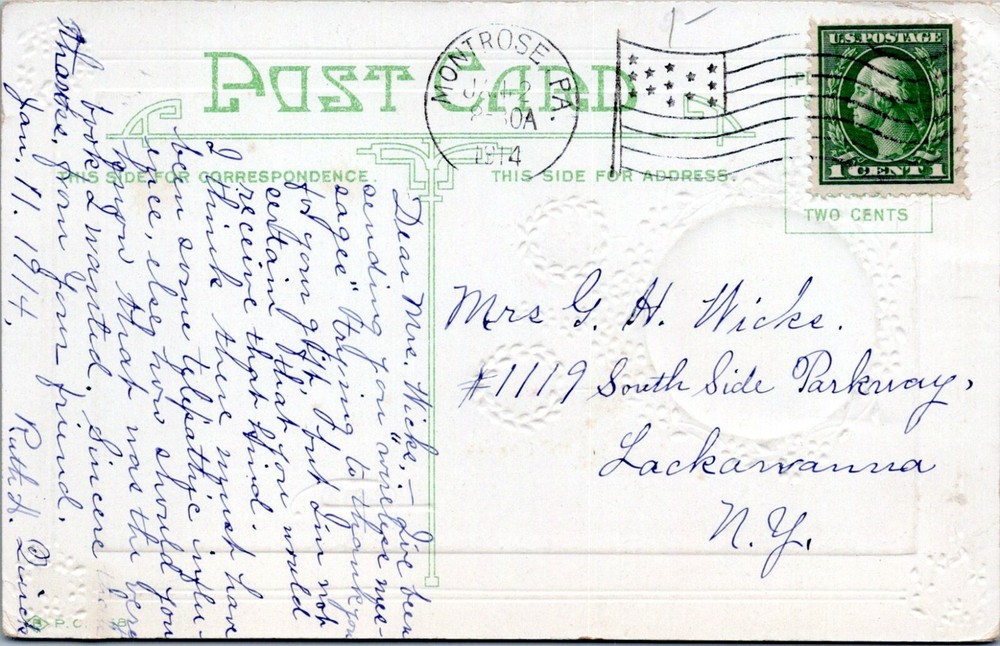 POST CARD
MONTROSE, PA.
1914
U.S. POSTAGE
1 CENT 1
TWO CENTS
THIS SIDE FOR CORRESPONDENCE.
THIS SIDE FOR ADDRESS.
Dear Mrs. Wicks,— I've been
sending you "wireless mes-
sages" trying to thank you
for your gift, but I'm not
certain that you would
receive that kind.
I think there must have
been some telepathic influ-
ence, else how should you
know that was the very
book I wanted. Sincere
thanks, from your friend.
Jan. 11. 1914. Ruth H.
Mrs G. H. Wicks.
#1119 South Side Parkway,
Lackawanna
N.Y.
P.C.